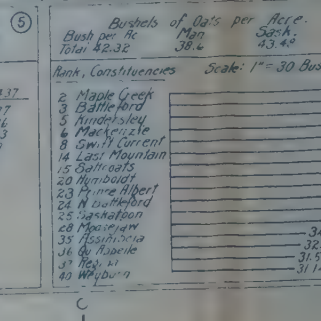 5
Bushels of Oats per Acre.
Bush per Ac Man. Sask.
Total 42.32 38.6 43.4
Rank, Constituencies Scale: 1" = 30 Bus
437
2 Maple Creek
3 Battleford
5 Kindersley
6 Mackenzie
8 Swift Current
14 Last Mountain
15 Saltcoats
20 Humboldt
23 Prince Albert
24 N Battleford
25 Saskatoon
28 Moosejaw 34
35 Assiniboia 32
36 Qu Appelle 31.5
37 Regina 31.1
40 Weyburn
C